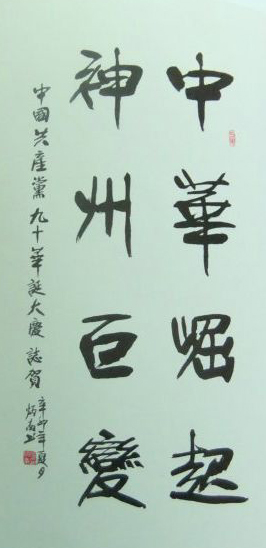 中華崛起
神州巨變
中國共產黨九十華誕大慶誌賀
辛卯年夏月